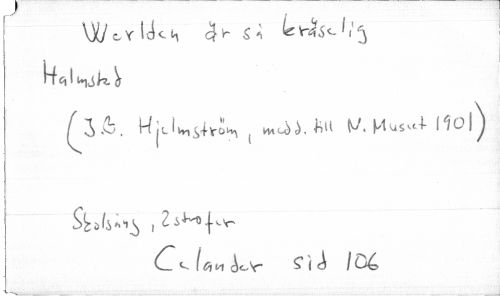 Werlden är så kräselig
Halmstad
(J.G. Hjelmström, medd. till N. Museet 1901)
Skolsång, 2 strofer
Celander sid 106